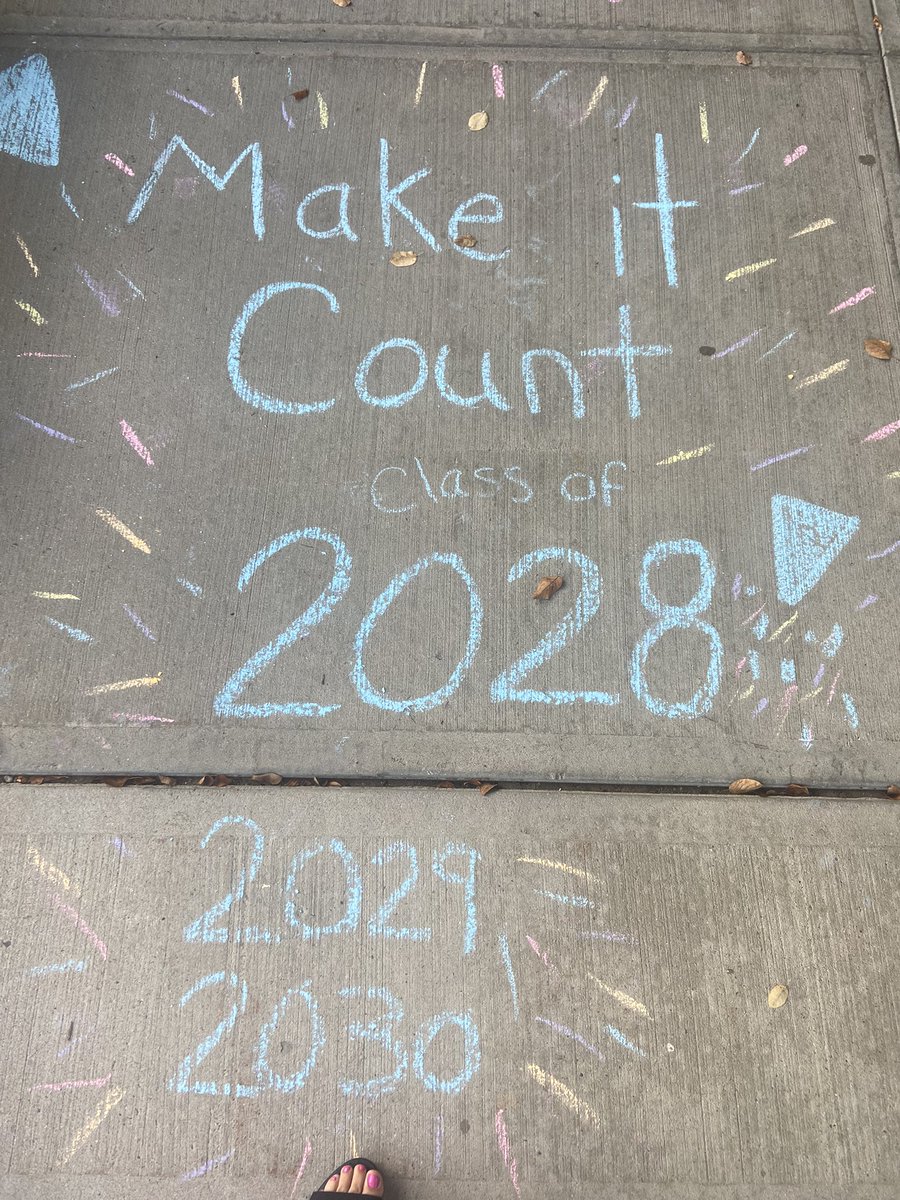 Make it
Count
class of
2028
2029
2030